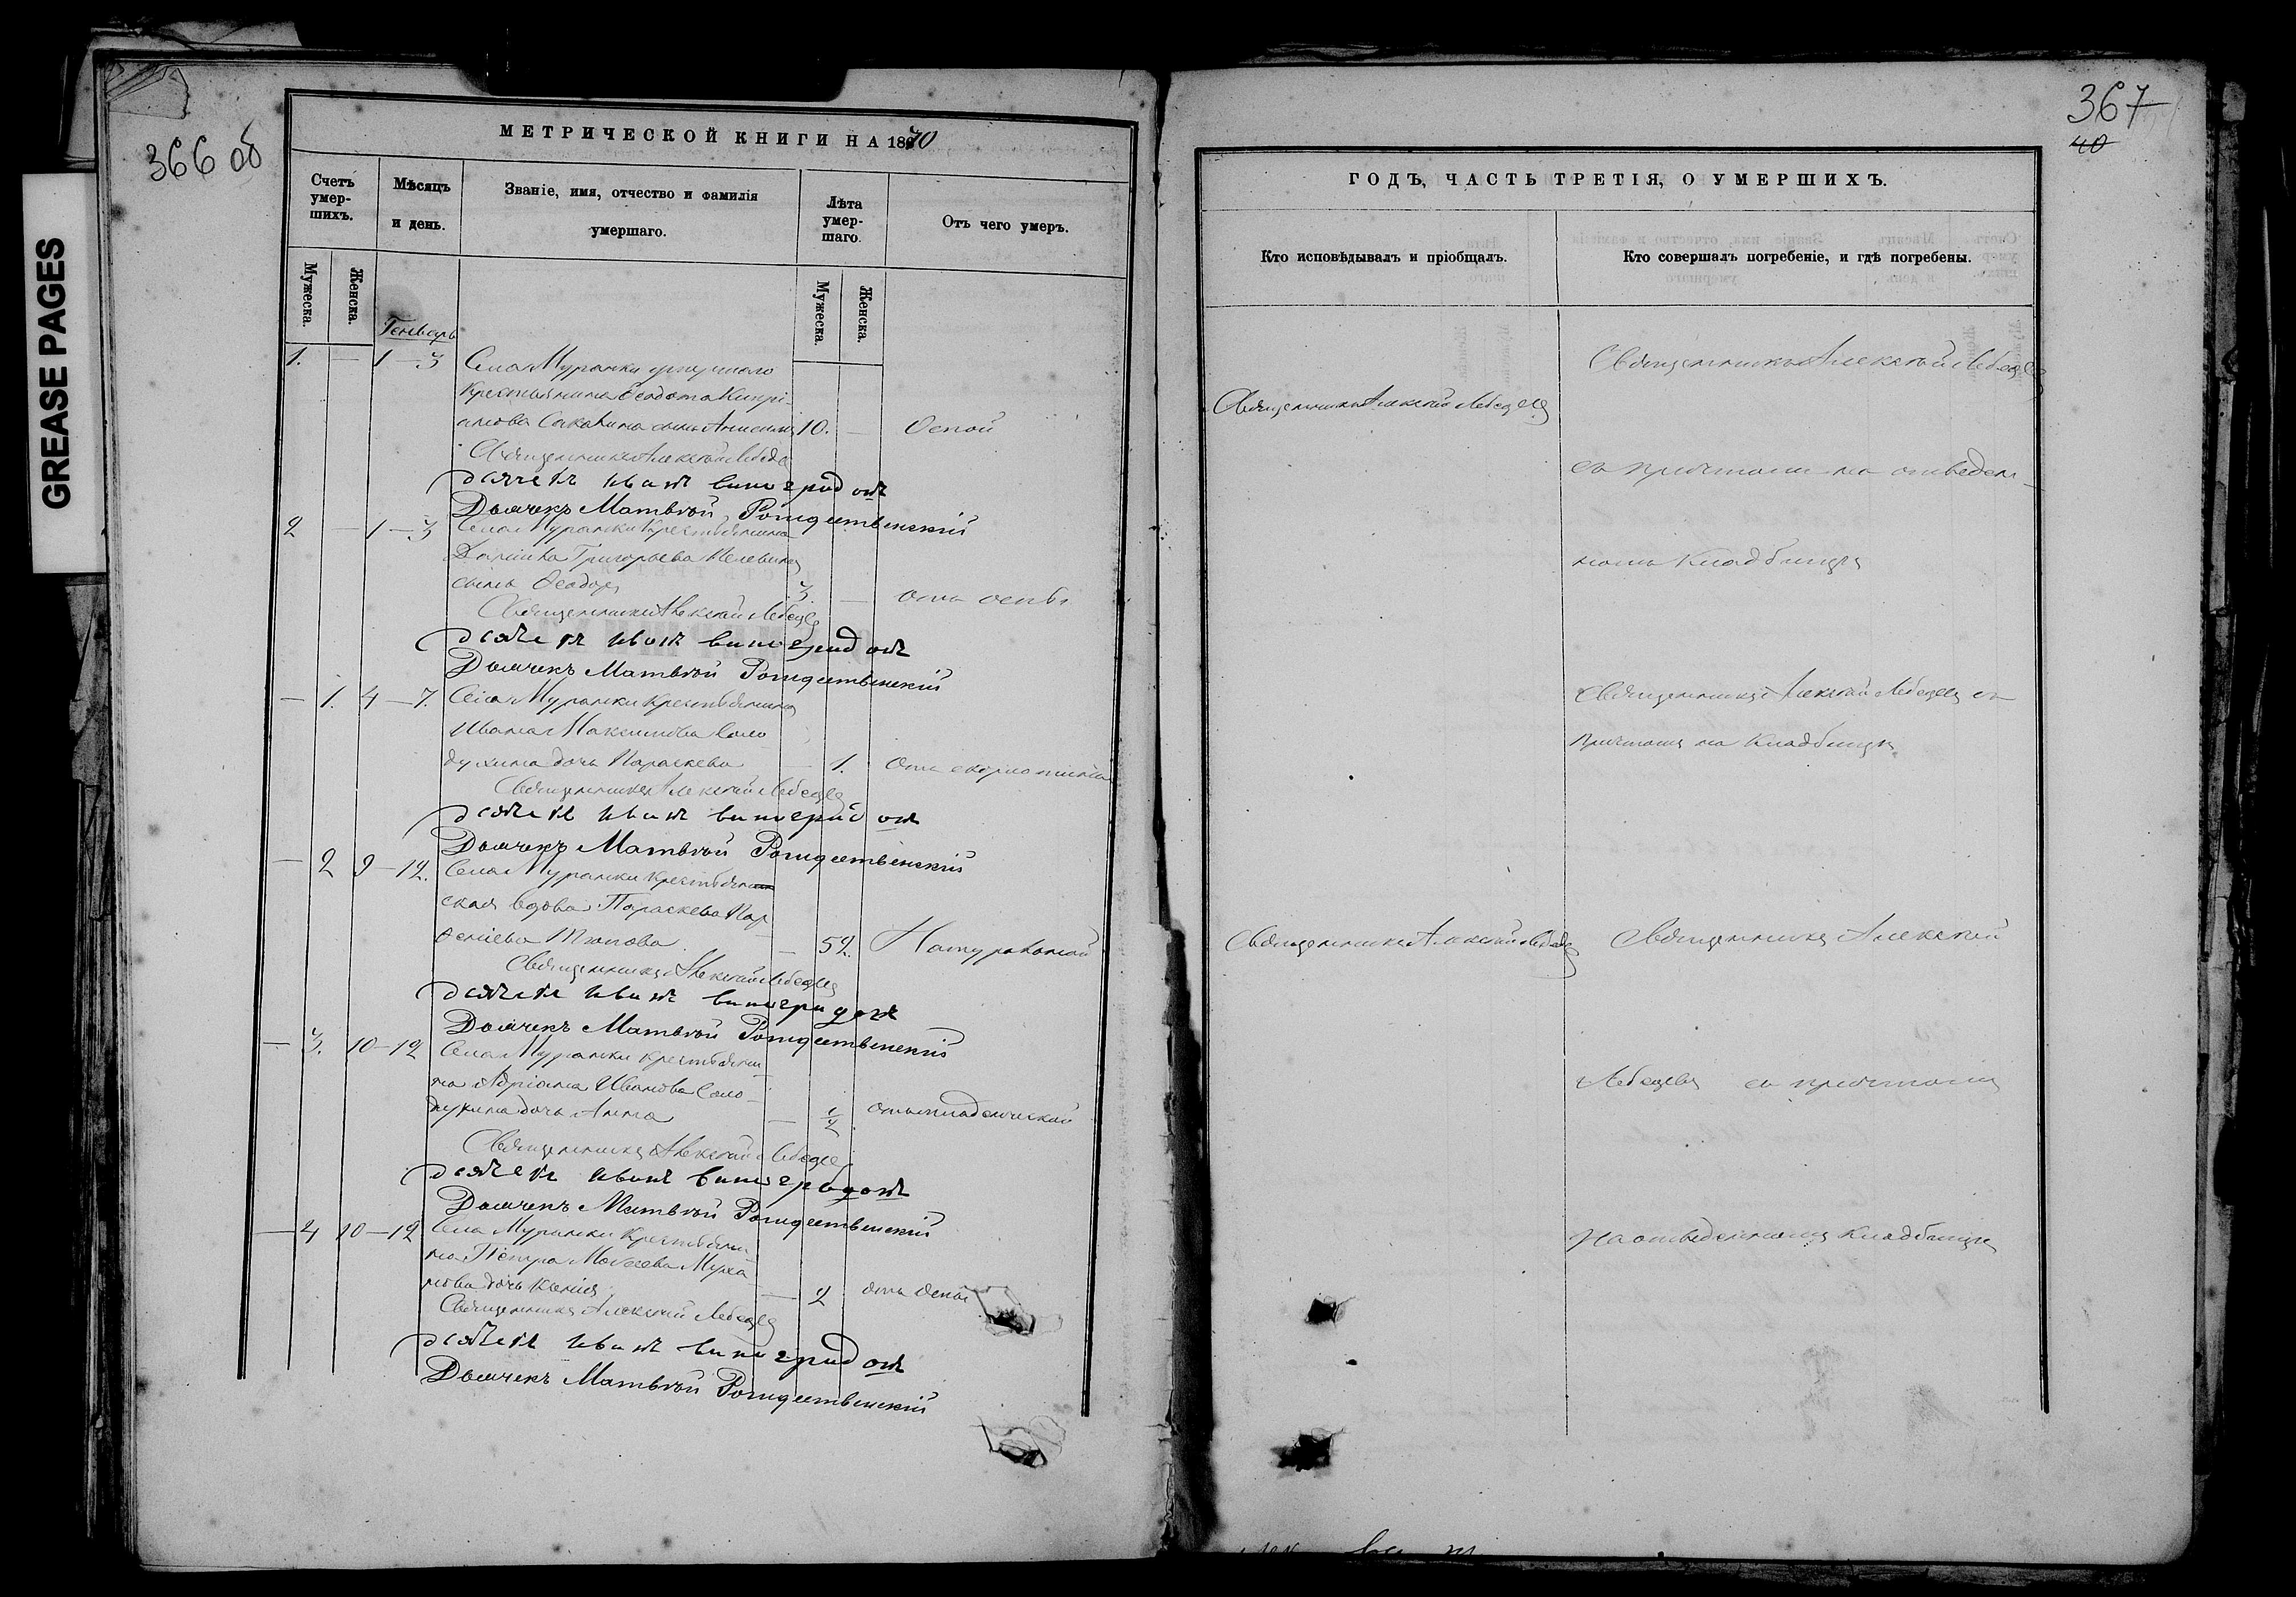 GREASE PAGES
366 об
МЕТРИЧЕСКОЙ КНИГИ НА 1870
Счетъ умер-шихъ.
Мѣсяцъ и день.
Званіе, имя, отчество и фамилія умершаго.
Лѣта умер-шаго.
Отъ чего умеръ.
Мужеска.
Женска.
Мужеска.
Женска.
Генварь
1. — 1 — 3 Села Муранки
Крестьянина Феодота Кипрі-
анова сынъ 10. — Оспой
Священникъ Алексѣй Лебедев
дьячекъ Иванъ Виноградовъ
Дьячекъ Матвѣй Рождественскій
2 — 1 — 3 Села Муранки Крестьянина
Григорьева
сынъ Феодоръ 3. — отъ оспы
Священникъ Алексѣй Лебедев
дьячекъ Иванъ Виноградовъ
Дьячекъ Матвѣй Рождественскій
— 1. 4 — 7. Села Муранки Крестьянина
Ивана Максимова Соло
духина дочь Параскева — 1. отъ
Священникъ Алексѣй Лебедев
дьячекъ Иванъ Виноградовъ
Дьячекъ Матвѣй Рождественскій
— 2 9 — 12. Села Муранки Крестьян
ская вдова Параскева Пар
ѳеніева — 52. Натуральной
Священникъ Алексѣй Лебедев
дьячекъ Иванъ Виноградовъ
Дьячекъ Матвѣй Рождественскій
— 3. 10 — 12 Села Муранки Крестьяни
на Адріана Иванова Соло-
духина дочь Анна — 1/2 отъ младенческой
Священникъ Алексѣй Лебедев
дьячекъ Иванъ Виноградовъ
Дьячекъ Матвѣй Рождественскій
— 4 10 — 12 Села Муранки Крестьяни
на Петра Моисеева Муха
нова дочь Ксенія — 2 отъ оспы
Священникъ Алексѣй Лебедев
дьячекъ Иванъ Виноградовъ
Дьячекъ Матвѣй Рождественскій
367
40
ГОДЪ, ЧАСТЬ ТРЕТІЯ, О УМЕРШИХЪ.
Кто исповѣдывалъ и пріобщалъ.
Кто совершалъ погребеніе, и гдѣ погребены.
Священникъ Алексѣй Лебедев
Священникъ Алексѣй Лебедев
съ причтомъ на отведен-
номъ Кладбищѣ
Священникъ Алексѣй Лебедев съ
причтомъ на Кладбищѣ
Священникъ Алексѣй Лебедев
Священникъ Алексѣй
Лебедевъ съ причтомъ
На отведенномъ Кладбищѣ